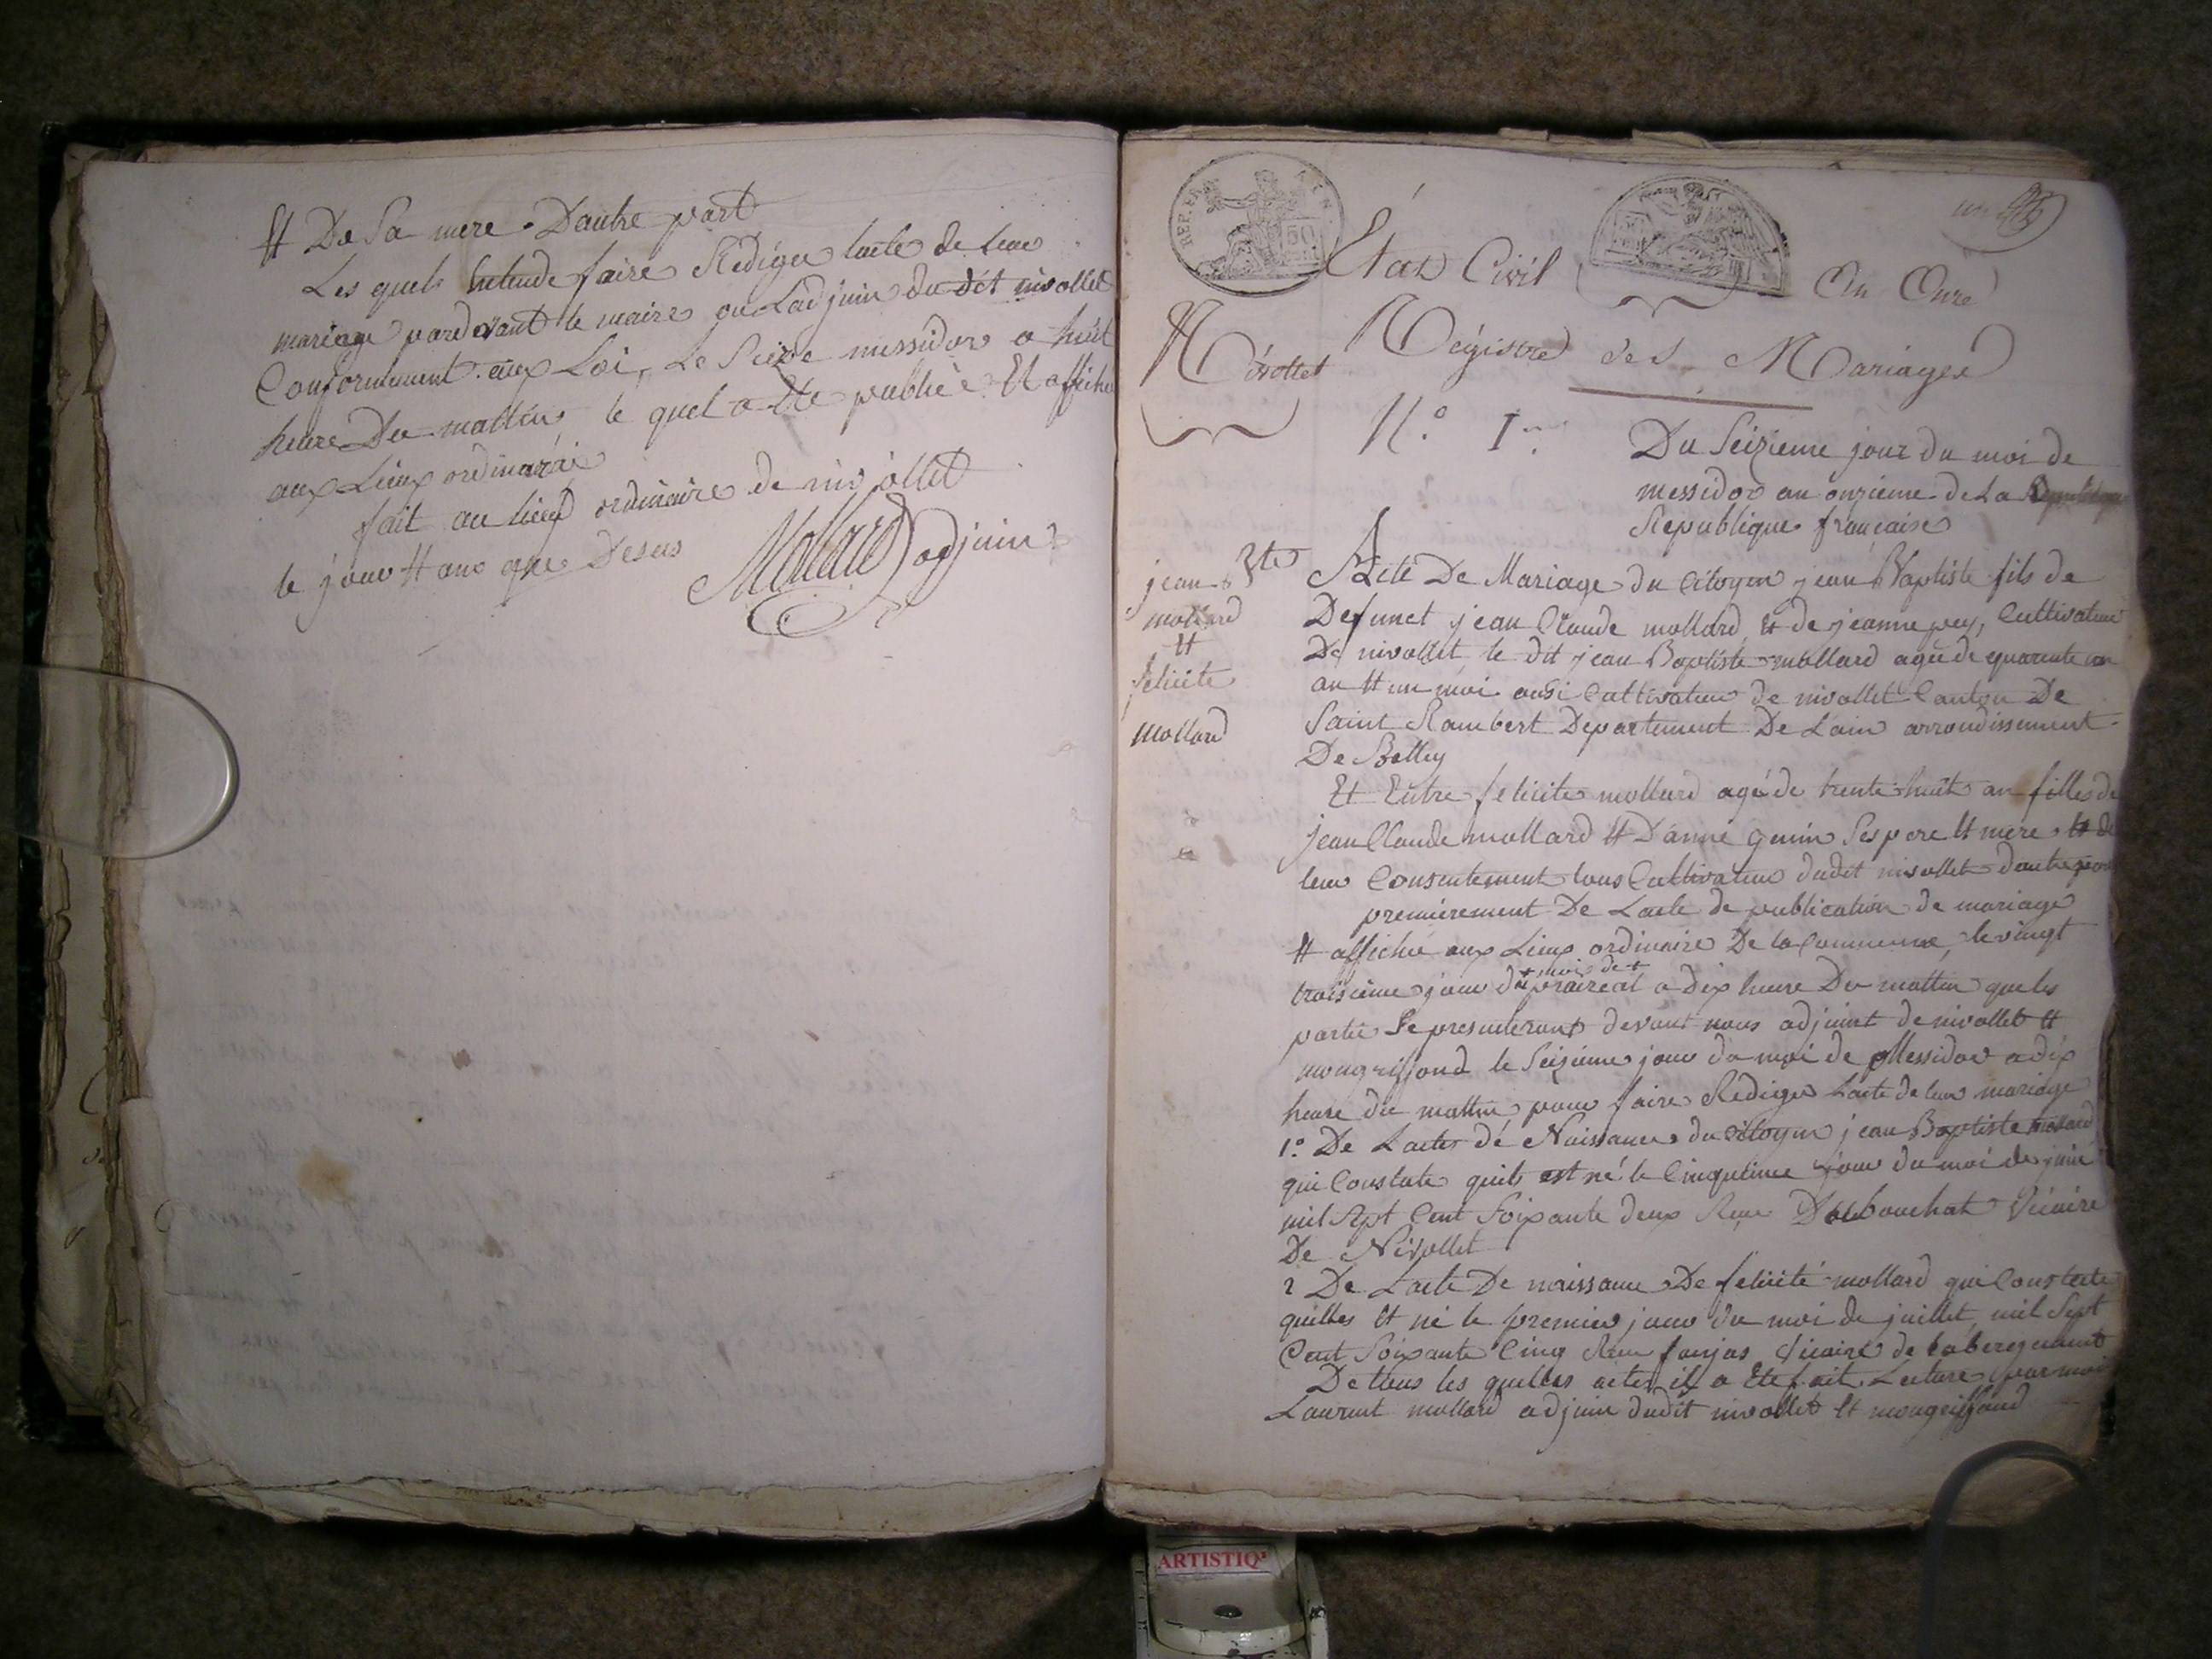 Et De Sa mere. D'autre part
Les quels faire Rediger lacte de leur
mariage pardevant le maire ou Ladjuin du dit nivollet
Conformement aux Loi, Le Seize messidor a huit
heure Du mattin le quel a Ete publiée Et affiche
aux Lieux ordinaire
fait au lieux ordinaire de nivollet
le jour Et an que Desus Mollard adjuin
REP. FRA
50
État Civil
An Onze
Nivollet
Régistre des Mariages
N.º 1er
Du Seizieme jour du moi de
messidor an onzieme de La
Republique française
jean Bte
mollard
Et
felicite
mollard
Acte De Mariage du Citoyen jean Baptiste fils de
Defunct jean Claude mollard Et de jeanne pey, Cultivateur
De nivollet le dit jean Baptiste mollard agé de quarente un
an Et un moi ausi Cultivateur de nivollet Canton De
Saint Rambert Departement De Lain arrondissement
De Belley
Et Entre felicite mollard agé de trente huit an filles de
jean Claude mollard Et D'anne genin Ses pere Et mere Et de
leur Consentement tous Cultivateur dudit nivollet dautre part
premierement De Lacte de publication de mariage
Et affichee aux Lieux ordinaire De la Commune, le vingt
troisieme jour du + moi de + praireal a dix heure Du mattin que les
partie Se presenteront devant nous adjuint de nivollet Et
mongriffond le Seizieme jour du moi de Messidor a dix
heure du mattin pour faire Rediger Lacte de leur mariage
1.º De Lacte de Naissance du citoyen jean Baptiste mollard
qui Constate quils est né le Cinquieme jour du moi de juin
mil Sept Cent Soixante deux Vicaire
De Nivollet
2 De Lacte De naissance De felicité mollard qui Constate
quelles Et né le premier jour du moi de juillet mil Sept
Cent Soixante Cinq Vicaire de
De tous les quelles actes il a Ete fait Lecture par moi
Laurent mollard adjuin dudit nivollet Et mongriffond
ARTISTIQ